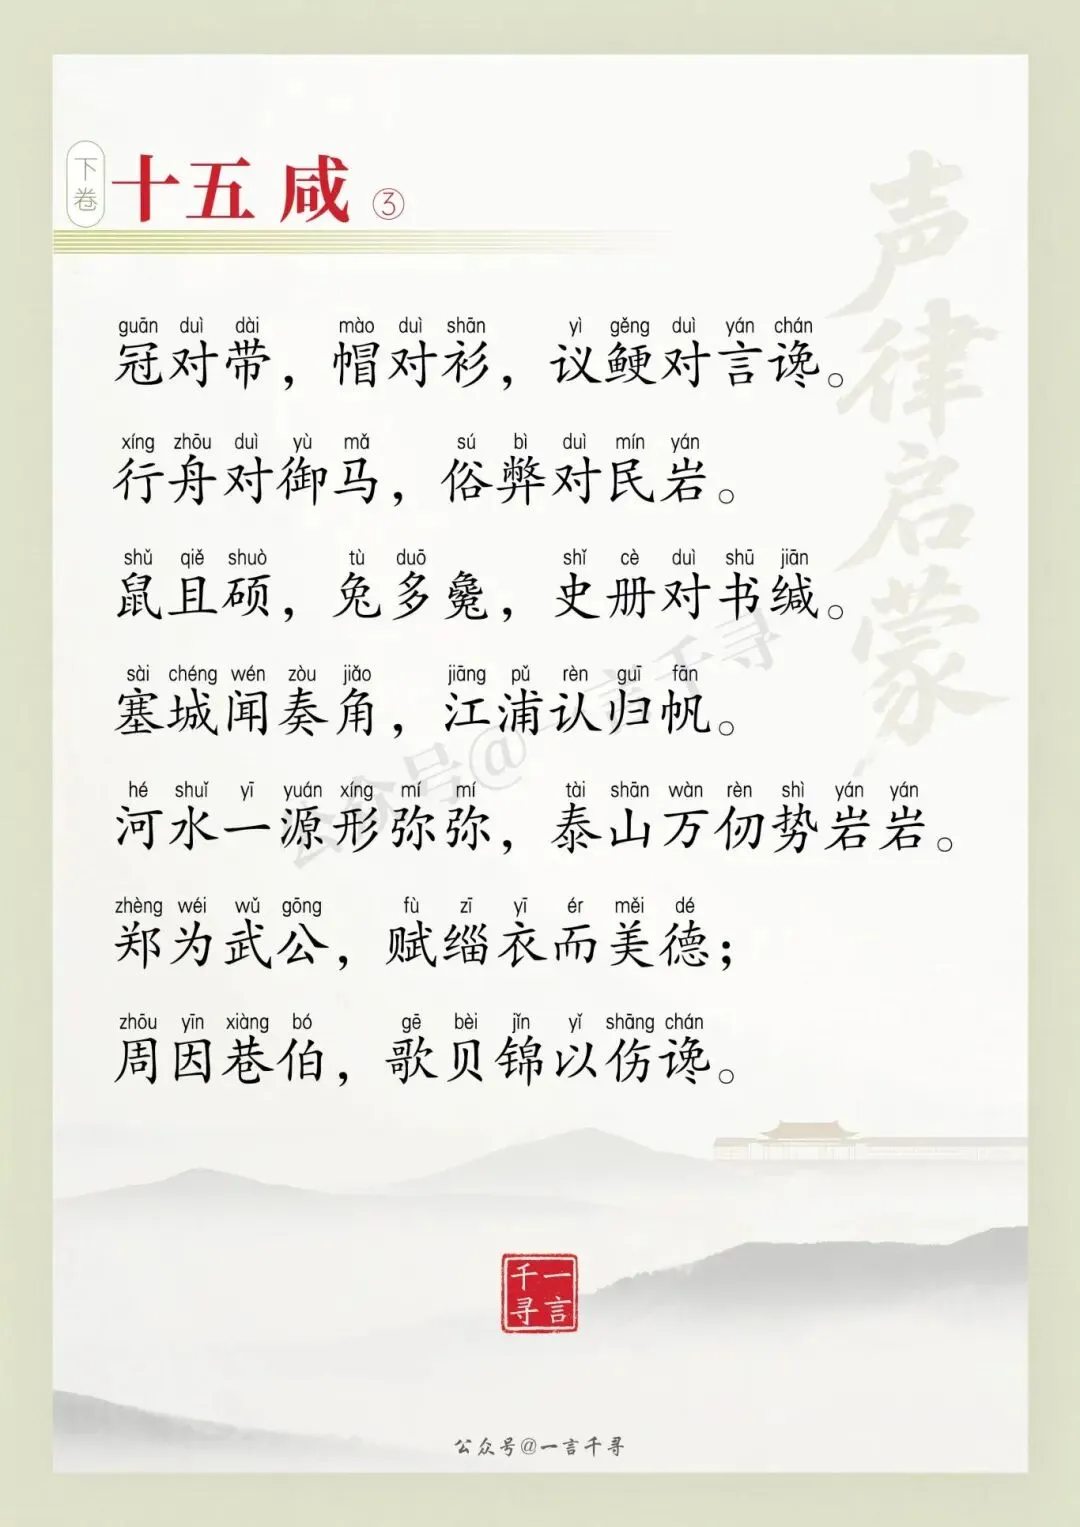 下卷
十五 咸 ③
声律启蒙
guān duì dài mào duì shān yì gěng duì yán chán
冠对带，帽对衫，议鲠对言谗。
xíng zhōu duì yù mǎ sú bì duì mín yán
行舟对御马，俗弊对民岩。
shǔ qiě shuò tù duō shǐ cè duì shū jiān
鼠且硕，兔多毚，史册对书缄。
sài chéng wén zòu jiǎo jiāng pǔ rèn guī fān
塞城闻奏角，江浦认归帆。
hé shuǐ yī yuán xíng mí mí tài shān wàn rèn shì yán yán
河水一源形弥弥，泰山万仞势岩岩。
zhèng wéi wǔ gōng fù zī yī ér měi dé
郑为武公，赋缁衣而美德；
zhōu yīn xiàng bó gē bèi jǐn yǐ shāng chán
周因巷伯，歌贝锦以伤谗。
公众号@一言千寻
一言千寻
公众号@一言千寻